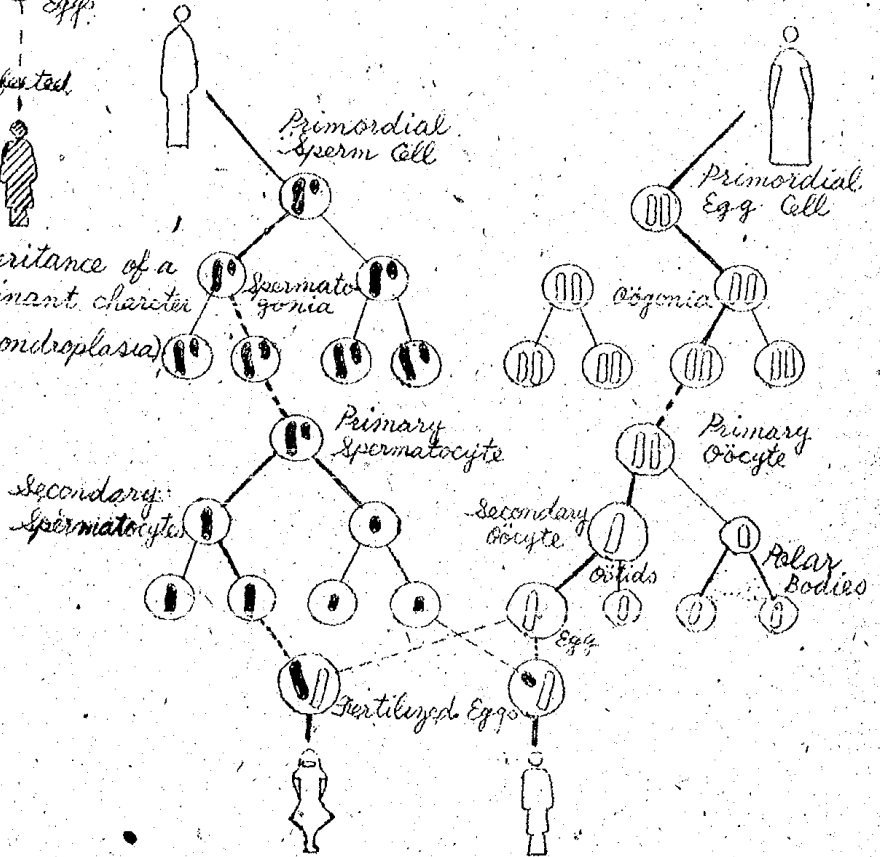 Eggs
Primordial
Sperm Cell
Primordial
Egg Cell
eritance of a
inant charcter
ondroplasia)
Spermato
gonia
Oögonia
Primary
Spermatocyte
Primary
Oöcyte
Secondary
Spermatocytes
Secondary
Oöcyte
Oötids
Polar
Bodies
Egg
Fertilized Eggs